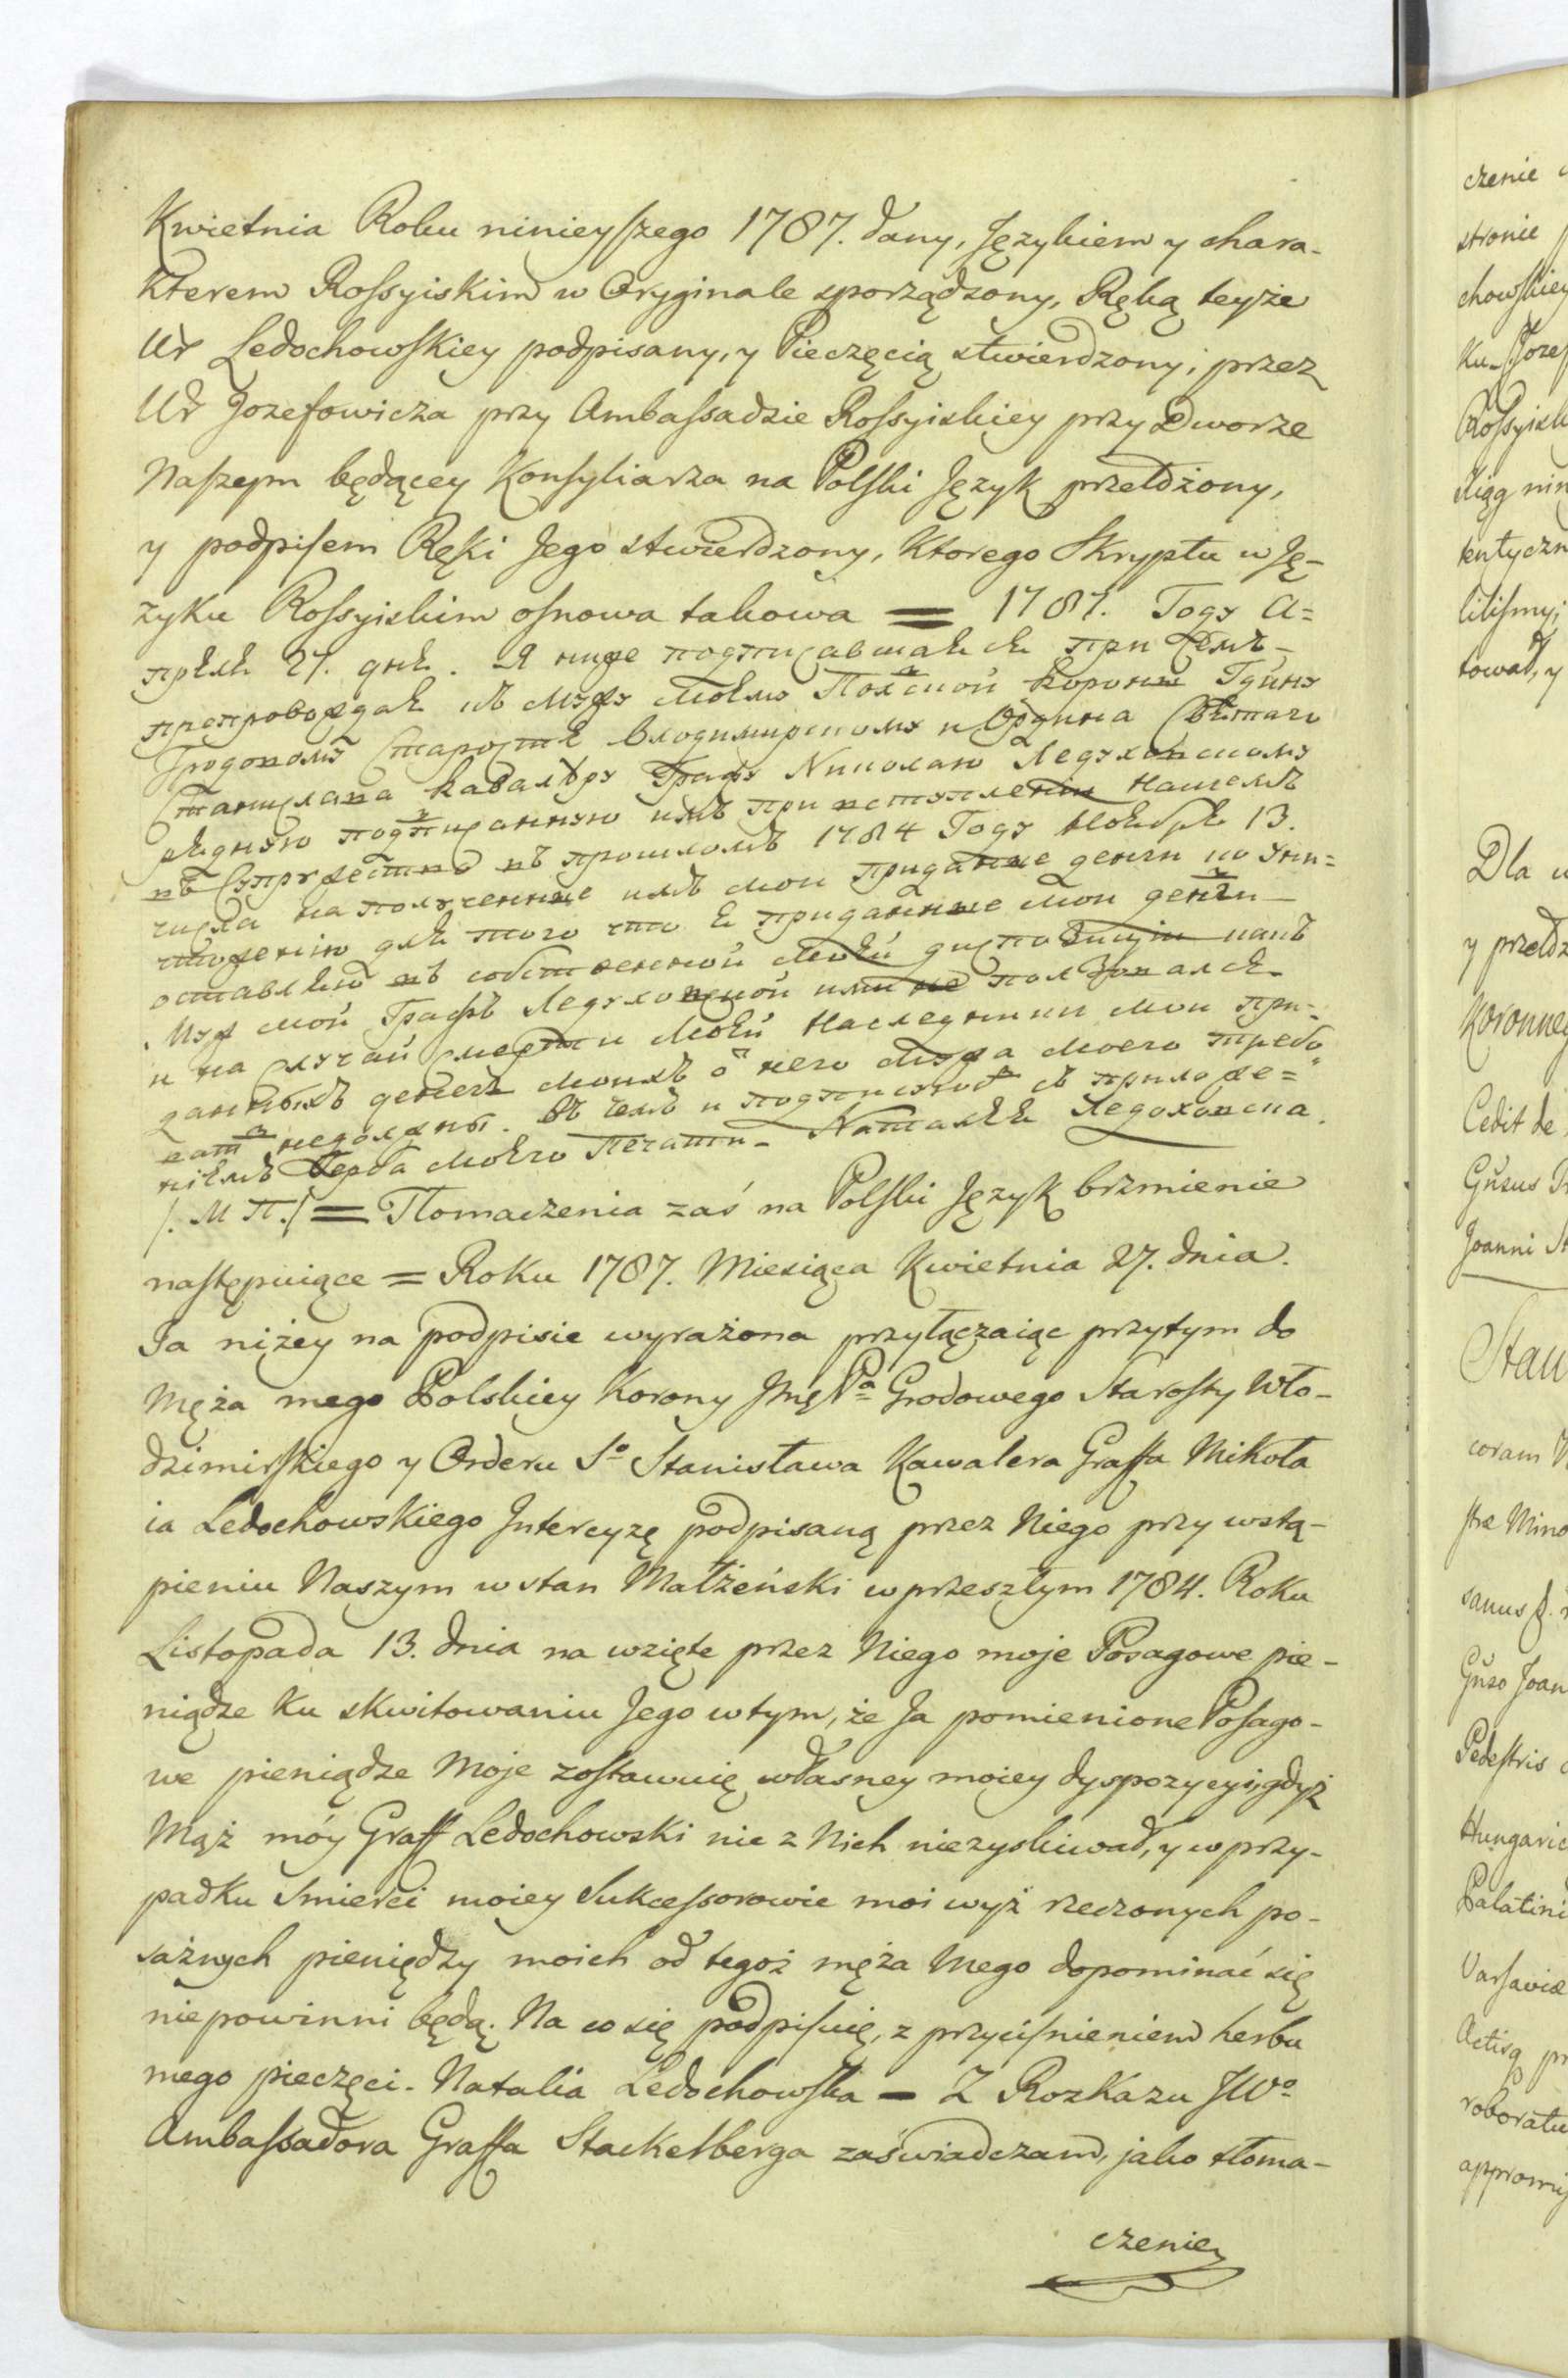 Kwietnia Roku ninieyszego 1787. dany, Językiem y chara-
kterem Rossyiskim w Oryginale sporządzony, Ręką teyże
Ur Ledochowskiey podpisany, y Pieczęcią stwierdzony; przez
Ur Jozefowicza przy Ambassadzie Rossyiskiey przy Dworze
Naszym będącey Konsyliarza na Polski Język przełożony,
y podpisem Ręki Jego stwierdzony, Ktorego Skryptu w Ję-
zyku Rossyiskim osnowa takowa = 1787. Году А=
прѣля 27. дня. Я ниже подписавшаяся при семъ
препровождая къ мужу моему Полской Короны
Гродовому Старостѣ Влодимирскому и Ордина Святаго
Станислава Кавалѣру Графу Николаю Ледуховскому
рядную подписанную имъ при вступленiи нашемъ
въ супружество въ прошломъ 1784 Году Ноября 13.
числа на полученные имъ мои приданые денги по уни=
чтоженiю для того что я приданные мои денги
оставляю въ собственной моѣй диспозицiи какъ
Мужъ мой Графъ Ледуховской ими не ползовался
и на случай смерти моѣй Наследники мои при=
данныхъ денегъ моихъ о него мужа моего требо
ват недолжны. Въ чемъ и подписуюсь съ приложе=
нiѣмъ Герба моѣго Печати. Наталья Ледоховска.
/. М П./ = Tłomaczenia zaś na Polski Język brzmienie
następuiące = Roku 1787. Miesiąca Kwietnia 27. dnia.
Ja niżey na podpisie wyrażona przyłączaiąc przytym do
Męża mego Polskiey Korony JmęPa Grodowego Starosty Wło-
dzimirskiego y Orderu So Stanisława Kawalera Graffa Mikoła
ia Ledochowskiego Intercyzę podpisaną przez Niego przy wstą-
pieniu Naszym w stan Małżeński w przeszłym 1784. Roku
Listopada 13. dnia na wzięte przez Niego moje Posagowe pie-
niądze ku skwitowaniu Jego w tym, że Ja pomienione Posago-
we pieniądze Moje zostawuię własney moiey dyspozycyi, gdyż
Mąż móy Graff Ledochowski nic z Nich niezyskiwał, y w przy-
padku Smierci moiey Sukcessorowie moi wyż rzeczonych po-
sażnych pieniędzy moich od tegoż męża Mego dopominać się
niepowinni będą. Na co się podpisuię, z przyciśnieniem herbu
mego pieczęci. Natalia Ledochowska = Z Rozkazu JWo
Ambassadora Graffa Stackelberga zaświadczam, jako tłoma-
czenie
czenie
stronie
chowskiey
Rossyisk
tentyczn
liliśmy;
tować, y
Dla
y przełoż
Koronney
Cedit de
Joanni
Stan
coram
stræ Mino
Guso Joan
Pedestris
Hungaric
Palatini
Varsaviæ
roboratu